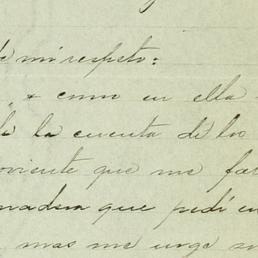 de mi respeto:
" & como en ella
de la cuenta de los
oviente que me fa
madera que pedí en
mas me urge